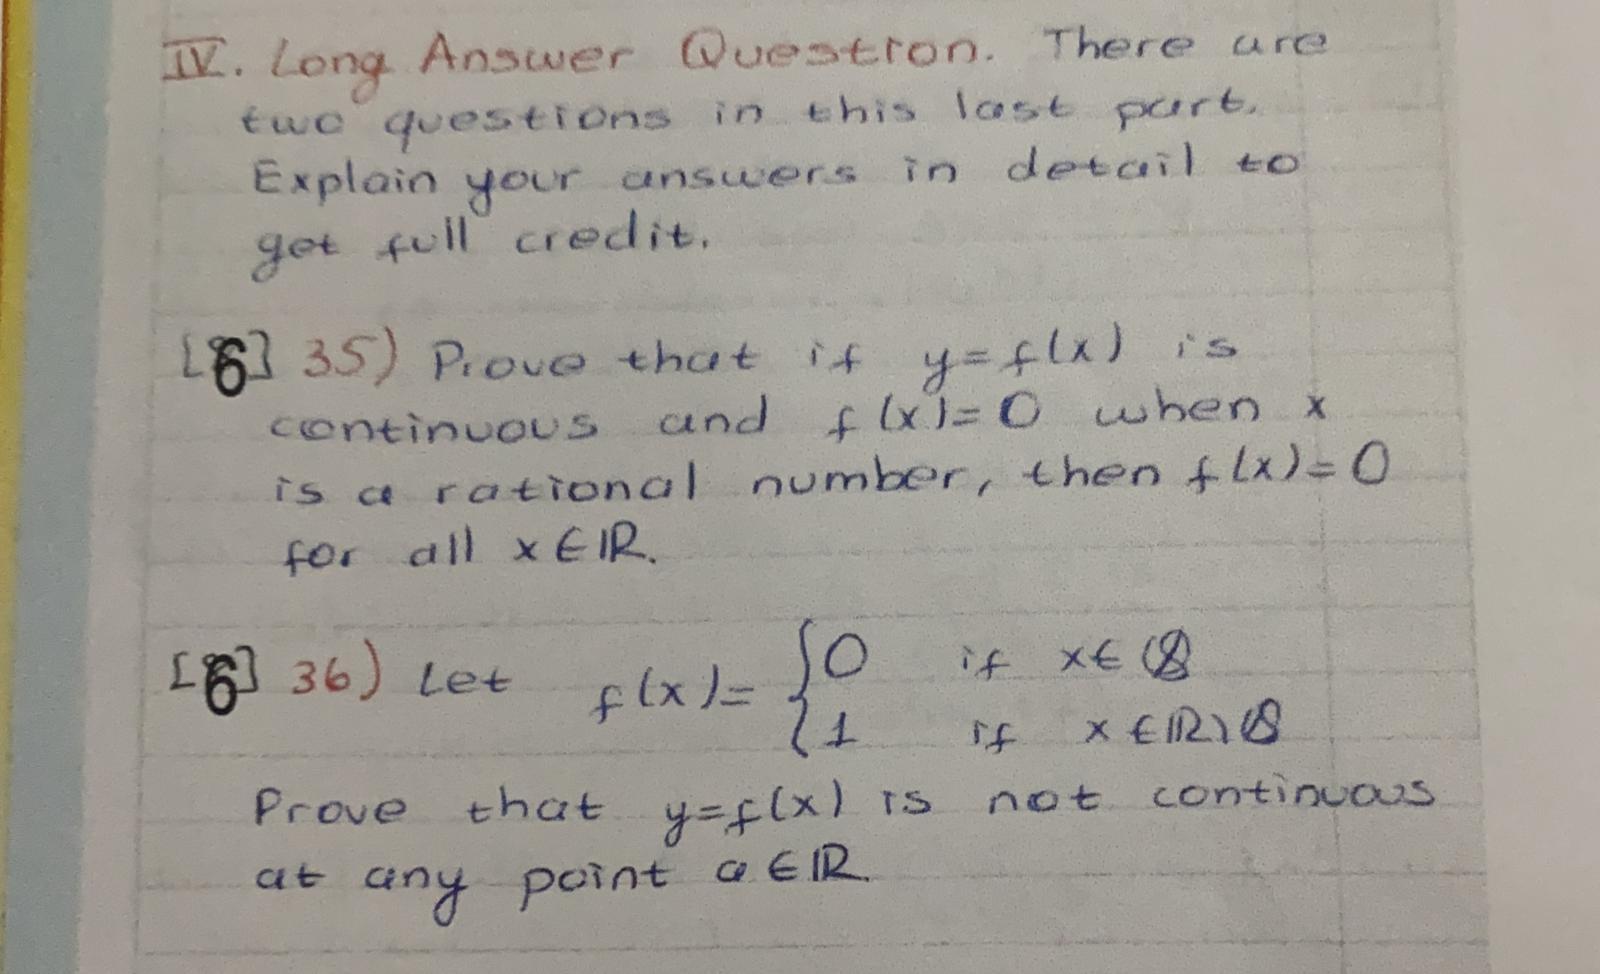 IV. Long Answer Question. There are
two questions in this last part.
Explain your answers in detail to
get full credit.
[6] 35) Prove that if y=f(x) is
continuous and f(x)=0 when x
is a rational number, then f(x)=0
for all x∈ℝ.
[6] 36) Let f(x)= { 0 if x∈ℚ
1 if x∈ℝ\ℚ
Prove that y=f(x) is not continuous
at any point a∈ℝ.